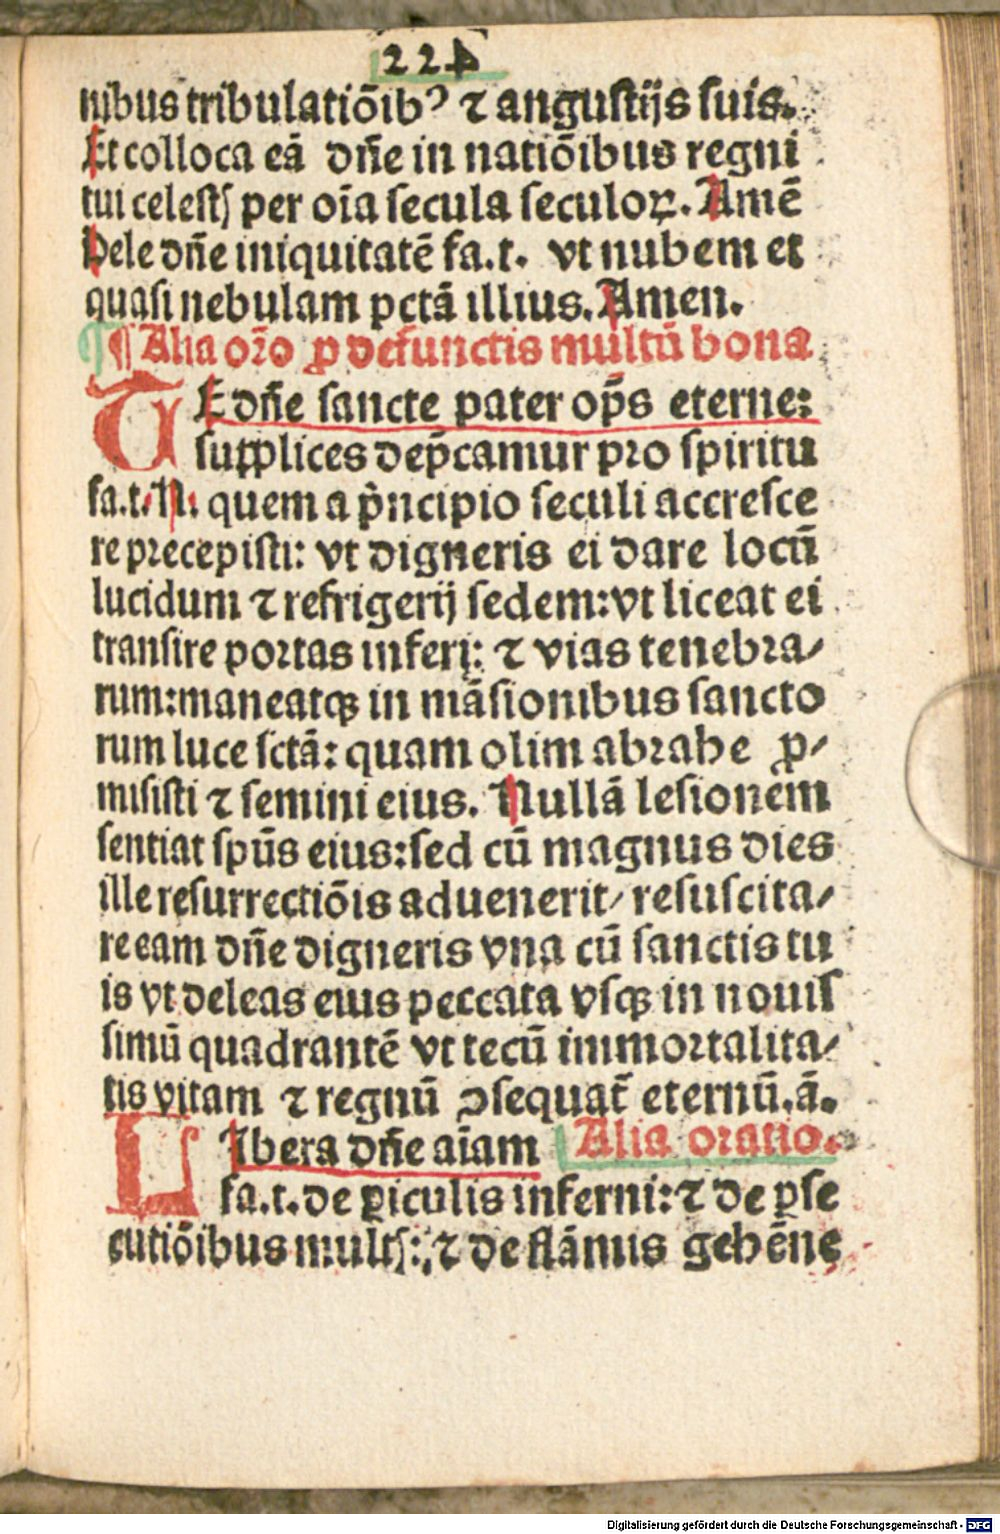 224
nibus tribulatiōibꝰ ⁊ angustijs suis.
Et colloca eā dn̄e in natiōibus regni
tui celestꝭ per oīa secula seculoꝝ. Amē
Dele dn̄e iniquitatē fa.t. vt nubem et
quasi nebulam pctā illius. Amen.
¶ Alia orō ꝓ defunctis multū bona
TE dn̄e sancte pater op̄s eterne:
supplices dep̄camur pro spiritu
fa.t. N. quem a p̄ncipio seculi accresce
re precepisti: vt digneris ei dare locū
lucidum ⁊ refrigerij sedem: vt liceat ei
transire portas inferi: ⁊ vias tenebra/
rum: maneatqꝫ in māsionibus sancto
rum luce sctā: quam olim abrahe ꝓ/
misisti ⁊ semini eius. Nullā lesionem
sentiat spūs eius: sed cū magnus dies
ille resurrectiōis aduenerit/ resuscita/
re eam dn̄e digneris vna cū sanctis tu
is vt deleas eius peccata vsqꝫ in nouis
simū quadrantē vt tecū immortalita/
tis vitam ⁊ regnū ꝯsequat᷑ eternū. ā.
LIbera dn̄e aīam Alia oratio.
fa.t. de ꝑiculis inferni: ⁊ de ꝑse
cutiōibus multꝭ: ⁊ de flāmis gehēne
Digitalisierung gefördert durch die Deutsche Forschungsgemeinschaft - DFG